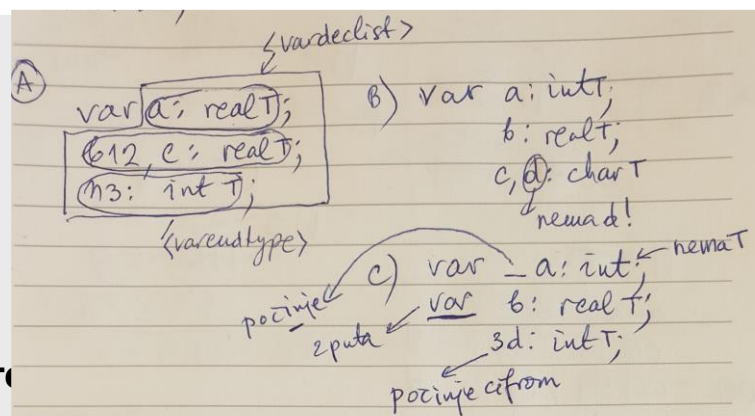 <vardeclist>
A
var a: realT;
b12, c: realT;
n3: intT;
<varendtype>
B) var a: intT;
b: realT;
c, d: charT
nema d!
C) var _a: int;
nema T
počinje
var b: realT;
2 puta
3d: intT;
počinje cifrom